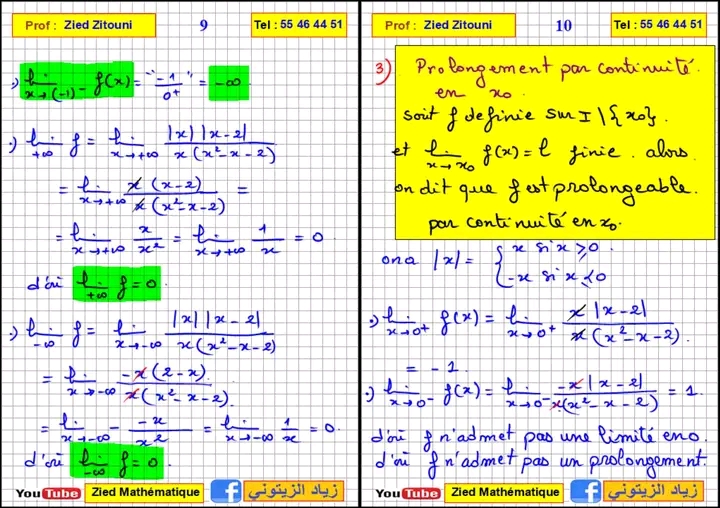 Prof : Zied Zitouni 9 Tel : 55 46 44 51
•) lim x→(-1)⁻ f(x) = "-1/0⁺" = -∞
•) lim +∞ f = lim x→+∞ |x| |x-2| / x(x²-x-2)
= lim x→+∞ x(x-2) / x(x²-x-2) =
= lim x→+∞ x/x² = lim x→+∞ 1/x = 0
d'où lim +∞ f = 0.
•) lim -∞ f = lim x→-∞ |x| |x-2| / x(x²-x-2)
= lim x→-∞ -x(2-x) / x(x²-x-2).
= lim x→-∞ - -x/x² = lim x→-∞ 1/x = 0.
d'où lim -∞ f = 0.
You Tube Zied Mathématique f زياد الزيتوني
Prof : Zied Zitouni 10 Tel : 55 46 44 51
3) Prolongement par continuité
en x₀.
soit f definie sur I \ {x₀}.
et lim x→x₀ f(x) = l finie. alors
on dit que f est prolongeable.
par continuité en x₀.
on a |x| = { x si x ≥ 0.
-x si x ≤ 0
•) lim x→0⁺ f(x) = lim x→0⁺ x |x-2| / x(x²-x-2).
= -1.
•) lim x→0⁻ f(x) = lim x→0⁻ -x |x-2| / x(x²-x-2) = 1.
d'où f n'admet pas une limité en 0.
d'où f n'admet pas un prolongement.
You Tube Zied Mathématique f زياد الزيتوني